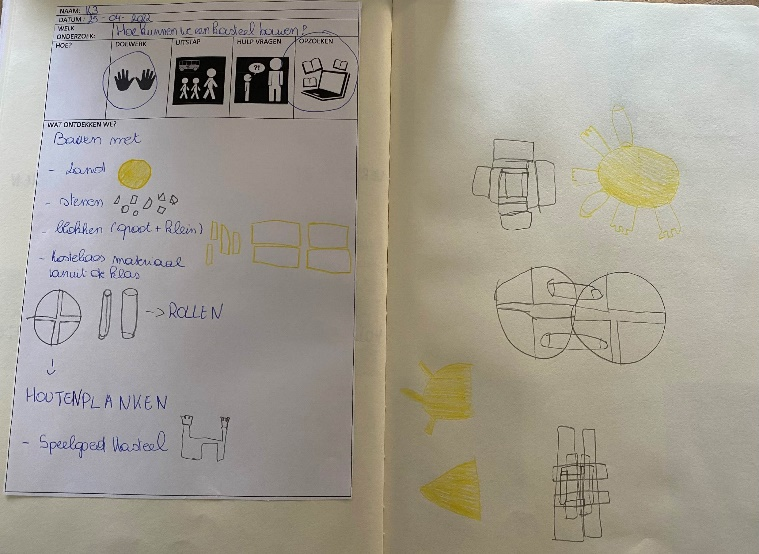 NAAM: K3
DATUM: 25-04-2022
WELK ONDERZOEK: Hoe kunnen we een kasteel bouwen?
HOE?
DOEWERK
UITSTAP
HULP VRAGEN
OPZOEKEN
?!
WAT ONTDEKKEN WE?
Bouwen met
- zand
- stenen
- blokken (groot + klein)
- kosteloos materiaal
vanuit de klas
-> ROLLEN
HOUTENPLANKEN
- Speelgoed kasteel